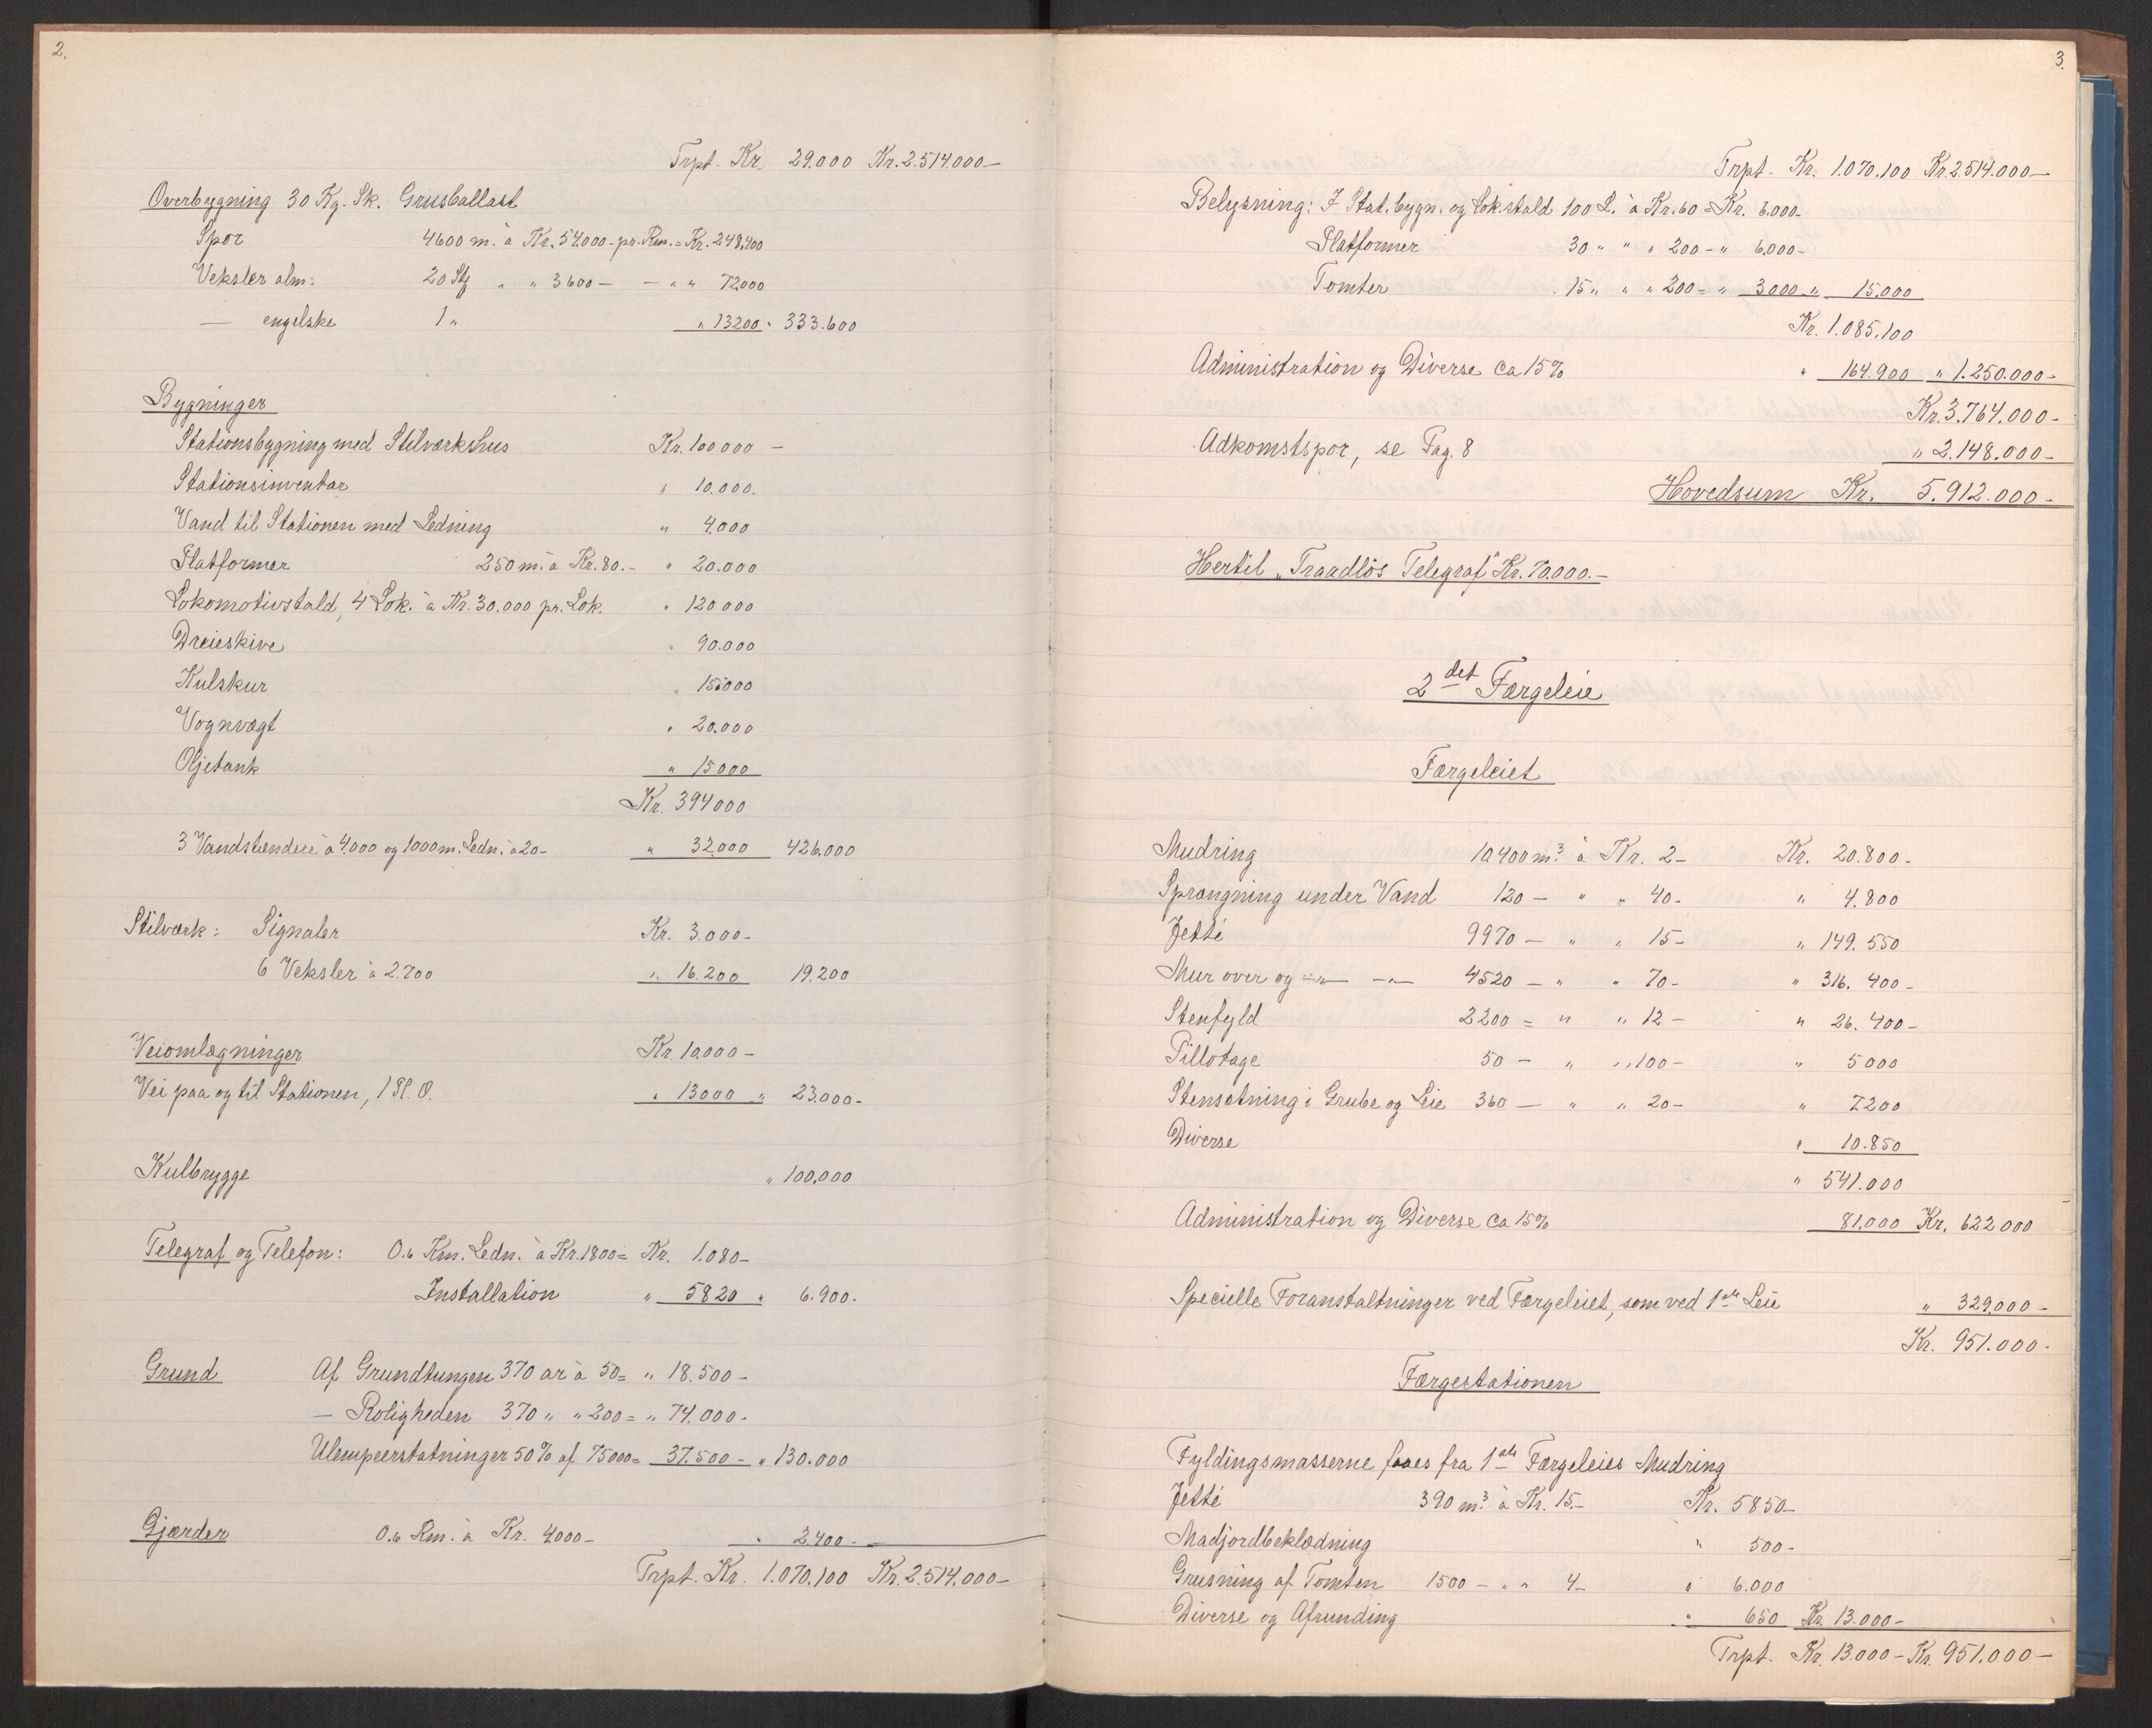 2.
Trpt. Kr. 29.000 Kr. 2.514.000 —
Overbygning 30 Kg. Sk. Grusballast
Spor 4600 m. à Kr. 54.000 - pr. Km. = Kr. 248.400
Veksler alm: 20 Stk „ „ 3600 — — „ „ 72.000
— engelske 1 „ „ 13200 „ 333.600
Bygninger
Stationsbygning med Stilværkshus Kr. 100 000 —
Stationsinventar „ 10.000.
Vand til Stationen med Ledning „ 4.000
Platformer 250 m. à Kr. 80. - „ 20.000
Lokomotivstald, 4 Lok. à Kr. 30.000 pr. Lok. „ 120 000
Dreieskive „ 90.000
Kulskur „ 15.000
Vognvægt „ 20.000
Oljetank „ 15000
Kr. 394 000
3 Vandstændere à 4.000 og 1000 m. Ledn. à 20 - „ 32.000 426.000
Stilværk: Signaler Kr. 3.000 -
6 Veksler à 2.700 „ 16.200 19.200
Veiomlægninger Kr. 10.000 -
Vei paa og til Stationen, 1 Pl. O. „ 13000 „ 23.000 -
Kulbrygge „ 100.000
Telegraf og Telefon: 0.6 Km. Ledn. à Kr. 1800 = Kr. 1.080 -
Installation „ 5820 „ 6.900.
Grund Af Grundtungen 370 ar à 50 = „ 18.500 -
— Roligheden 370 „ „ 200 = „ 74.000 -
Ulempeerstatninger 50% af 75000 = 37.500 - „ 130.000
Gjærder 0.6 Km. à Kr. 4000 - „ 2.400 -
Trpt. Kr. 1.070.100 Kr. 2.514.000 —
3.
Trpt. Kr. 1.070.100 Kr. 2.514.000 —
Belysning: I Stat. bygn. og Lok.stald 100 L. à Kr. 60 = Kr. 6.000 -
Platformer 30 „ „ „ 200 - „ 6.000 -
Tomter 15 „ „ „ 200 = „ 3000 „ 15.000
Kr. 1.085.100
Administration og Diverse ca 15% „ 164.900 „ 1.250.000 -
Kr. 3.764.000 -
Adkomstspor, se Pag. 8 „ 2.148.000 -
Hovedsum Kr. 5.912.000 -
Hertil „Traadløs Telegraf" Kr. 70.000. -
2det Færgeleie
Færgeleiet
Mudring 10400 m.³ à Kr. 2 - Kr. 20.800 -
Sprængning under Vand 120 — „ „ 40 - „ 4.800
Jetté 9970 — „ „ 15 - „ 149.550
Mur over og — „ — — „ — 4520 — „ „ 70 - „ 316.400 -
Stenfyld 2200 = „ „ 12 - „ 26.400 -
Pillotage 50 — „ „ 100 - „ 5000
Stensætning i Grube og Leie 360 — „ „ 20 - „ 7200
Diverse „ 10.850
„ 541.000
Administration og Diverse ca 15% 81.000 Kr. 622 000
Specielle Foranstaltninger ved Færgeleiet, som ved 1ste Leie „ 329.000 -
Kr. 951.000 -
Færgestationen
Fyldingsmasserne faaes fra 1ste Færgeleies Mudring
Jetté 390 m.³ à Kr. 15. - Kr. 5850 -
Madjordbeklædning „ 500 -
Grusning af Tomten 1500 — „ „ 4 - „ 6.000
Diverse og Afrunding „ 650 Kr. 13.000 -
Trpt. Kr. 13.000 - Kr. 951.000 —